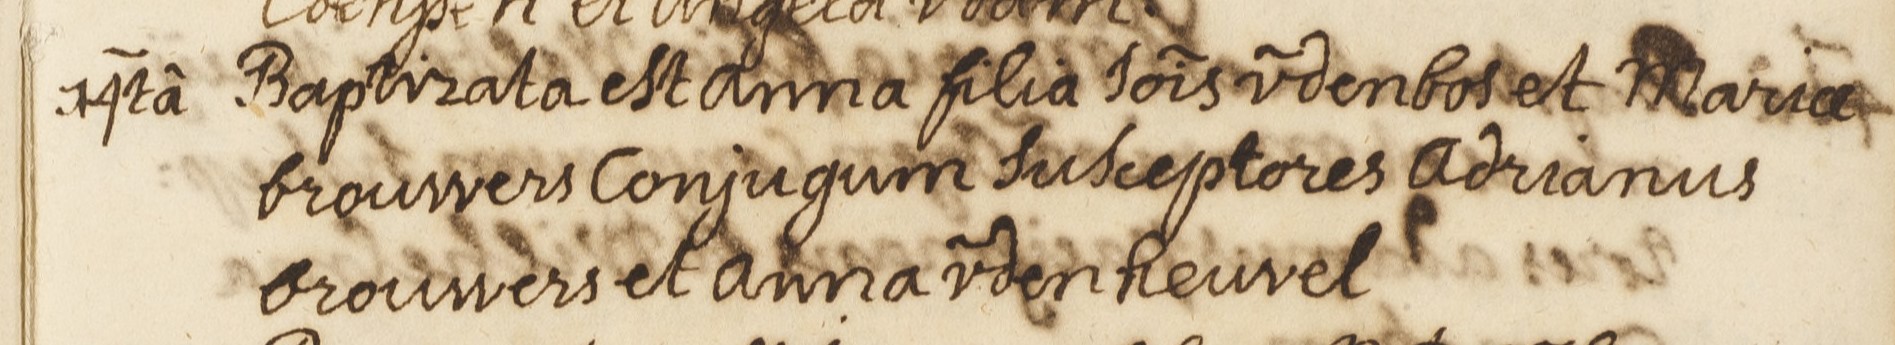 et Angela
14tâ Baptizata est Anna filia Joīs v̄denbos et Mariæ
brouwers Conjugum Susceptores Adrianus
brouwers et Anna v̄denheuvel